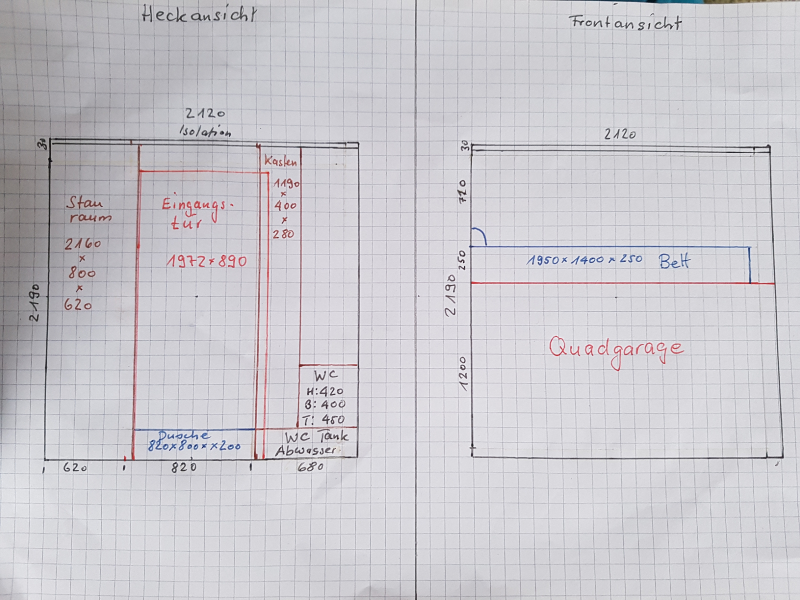 Heckansicht
2120
Isolation
30
2190
Stau
raum
2160
x
800
x
620
Eingangs-
tür
1972 x 890
Kasten
1190
x
400
x
280
WC
H: 420
B: 400
T: 450
Dusche
820x800 x x200
WC Tank
Abwasser
620
820
680
Frontansicht
2120
30
710
250
2190
1200
1950 x 1400 x 250 Bett
Quadgarage